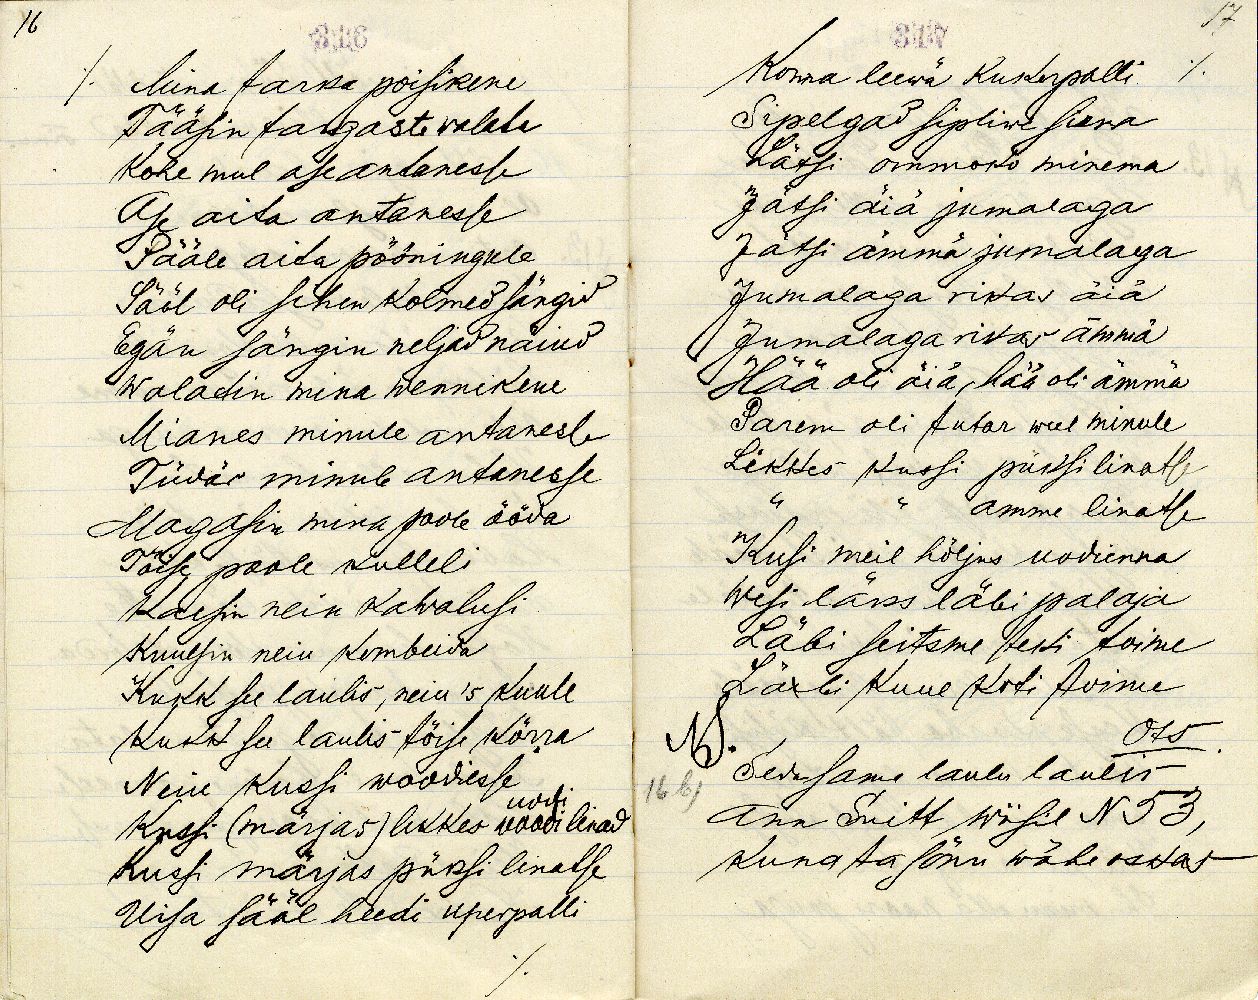 16
316
/. Mina tarka poisikene
Tääsin tangaste walela
Kohe mul ase antanesse
Ase aita antanesse
Pääle aida pööningule
Sääl oli sehen kolmed sängid
Egän sängin neljad näiud
Woladin mina wennikene
Mianes minule antanesse
Tüdär minule antanesse
Magasin mina poole ööda
Tõise poole kulleli
Kaesin neiu kawalusi
Kuulsin neiu kombeida
Kukk see laulis, neiu 's kuule
Kukk see laulis tõise kõrra
Neiu kussi woodiesse
Kussi (märjas) likkes woodi linad
uodi
Kussi märjas püksi linatse
Uisa sääl heedi uperpalli
/.
17
317
Konna leewä Kukerpalli /.
Sipelgad sipliwa sinna
Lätsi ommoko minema
Jätsi äiä jumalaga
Jätsi ämmä jumalaga
Jumalaga rikas äiä
Jumalaga rikas ämmä
Hää oli äiä, hää oli ämmä
Parem oli tutar weel minule
Likkes kussi püksi linatse
" " amme linatse
"Kusi meil hõljus uodienna
Wesi läks läbi palaja
Läbi seitsme teki toime
Läbi kuue koti toime
Ots.
NB. Sedasama laulu laulis
16 b)
Ann Suitt wiisil N 53,
kuna ta sõnu wähe oskas